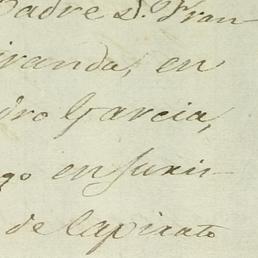 Padre D. Fran-
iranda, en
dro Garcia,
go en Juris-
de Capirato